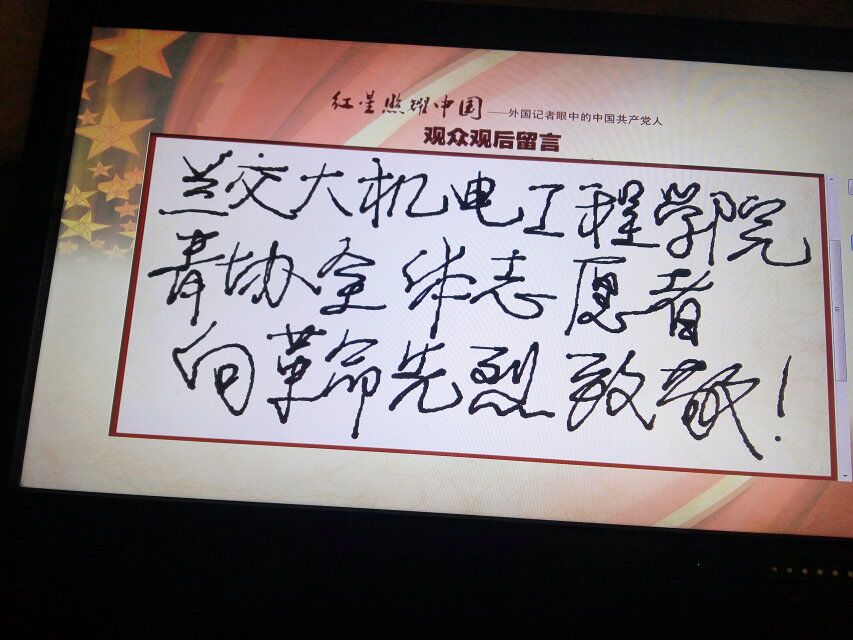 红星照耀中国——外国记者眼中的中国共产党人
观众观后留言
兰交大机电工程学院
青协全体志愿者
向革命先烈致敬！